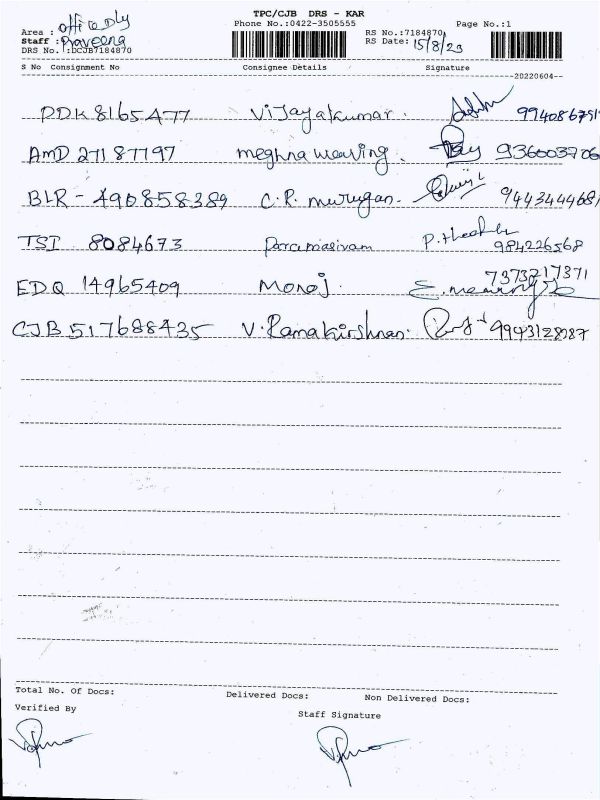 TPC/CJB DRS - KAR
Phone No.:0422-3505555
Page No.:1
Area : office Dly
Staff : Praveena
DRS No. :DCJB7184870
RS No.:7184870
RS Date: 15/8/23
S No Consignment No Consignee Details Signature
--20220604--
PDK 8165477 Vijayakumar.
AMD 271 87797 meghna weaving.
BLR - 490858389 C.R. murugan.
TSI 8084673 Paramasivam 984226568
7373217371
EDQ 14965409 Monoj.
CJB 517688435 V. Ramakirshnan. 9943128987
Total No. Of Docs: Delivered Docs: Non Delivered Docs:
Verified By
Staff Signature